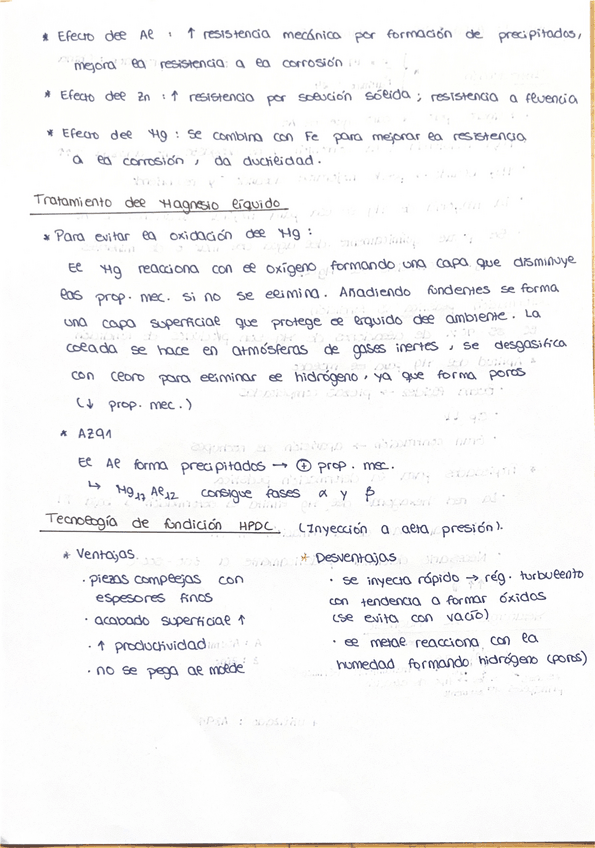 * Efecto del Al : ↑ resistencia mecánica por formación de precipitados,
mejora la resistencia a la corrosión
* Efecto del Zn : ↑ resistencia por solución sólida ; resistencia a fluencia
* Efecto del Mg : se combina con Fe para mejorar la resistencia
a la corrosión , da ductilidad.
Tratamiento del Magnesio líquido
* Para evitar la oxidación del Mg :
El Mg reacciona con el oxígeno formando una capa que disminuye
las prop. mec. si no se elimina. Añadiendo fundentes se forma
una capa superficial que protege el líquido del ambiente. La
colada se hace en atmósferas de gases inertes , se desgasifica
con cloro para eliminar el hidrógeno, ya que forma poros
(↓ prop. mec.)
* AZ91
El Al forma precipitados → ⊕ prop. mec.
↳ Mg17 Al12 consigue fases α y β
Tecnología de fundición HPDC (Inyección a alta presión).
* Ventajas
· piezas complejas con
espesores finos
· acabado superficial ↑
· ↑ productividad
· no se pega al molde
* Desventajas
· se inyecta rápido → rég. turbulento
con tendencia a formar óxidos
(se evita con vacío)
· el metal reacciona con la
humedad formando hidrógeno (poros)